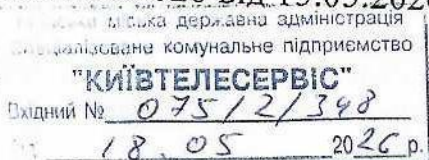 від 15.05.202
міська державна адміністрація
комунальне підприємство
"КИЇВТЕЛЕСЕРВІС"
Вхідний № 075/2/348
18.05 2026 р.